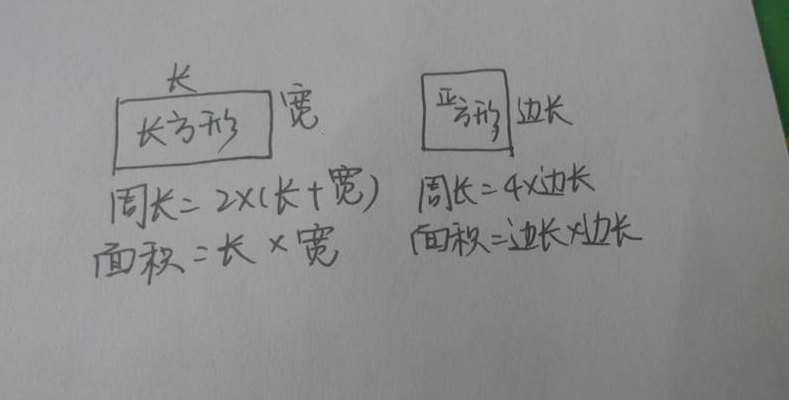 长
长方形 宽
周长=2×(长+宽)
面积=长×宽
正方形 边长
周长=4×边长
面积=边长×边长